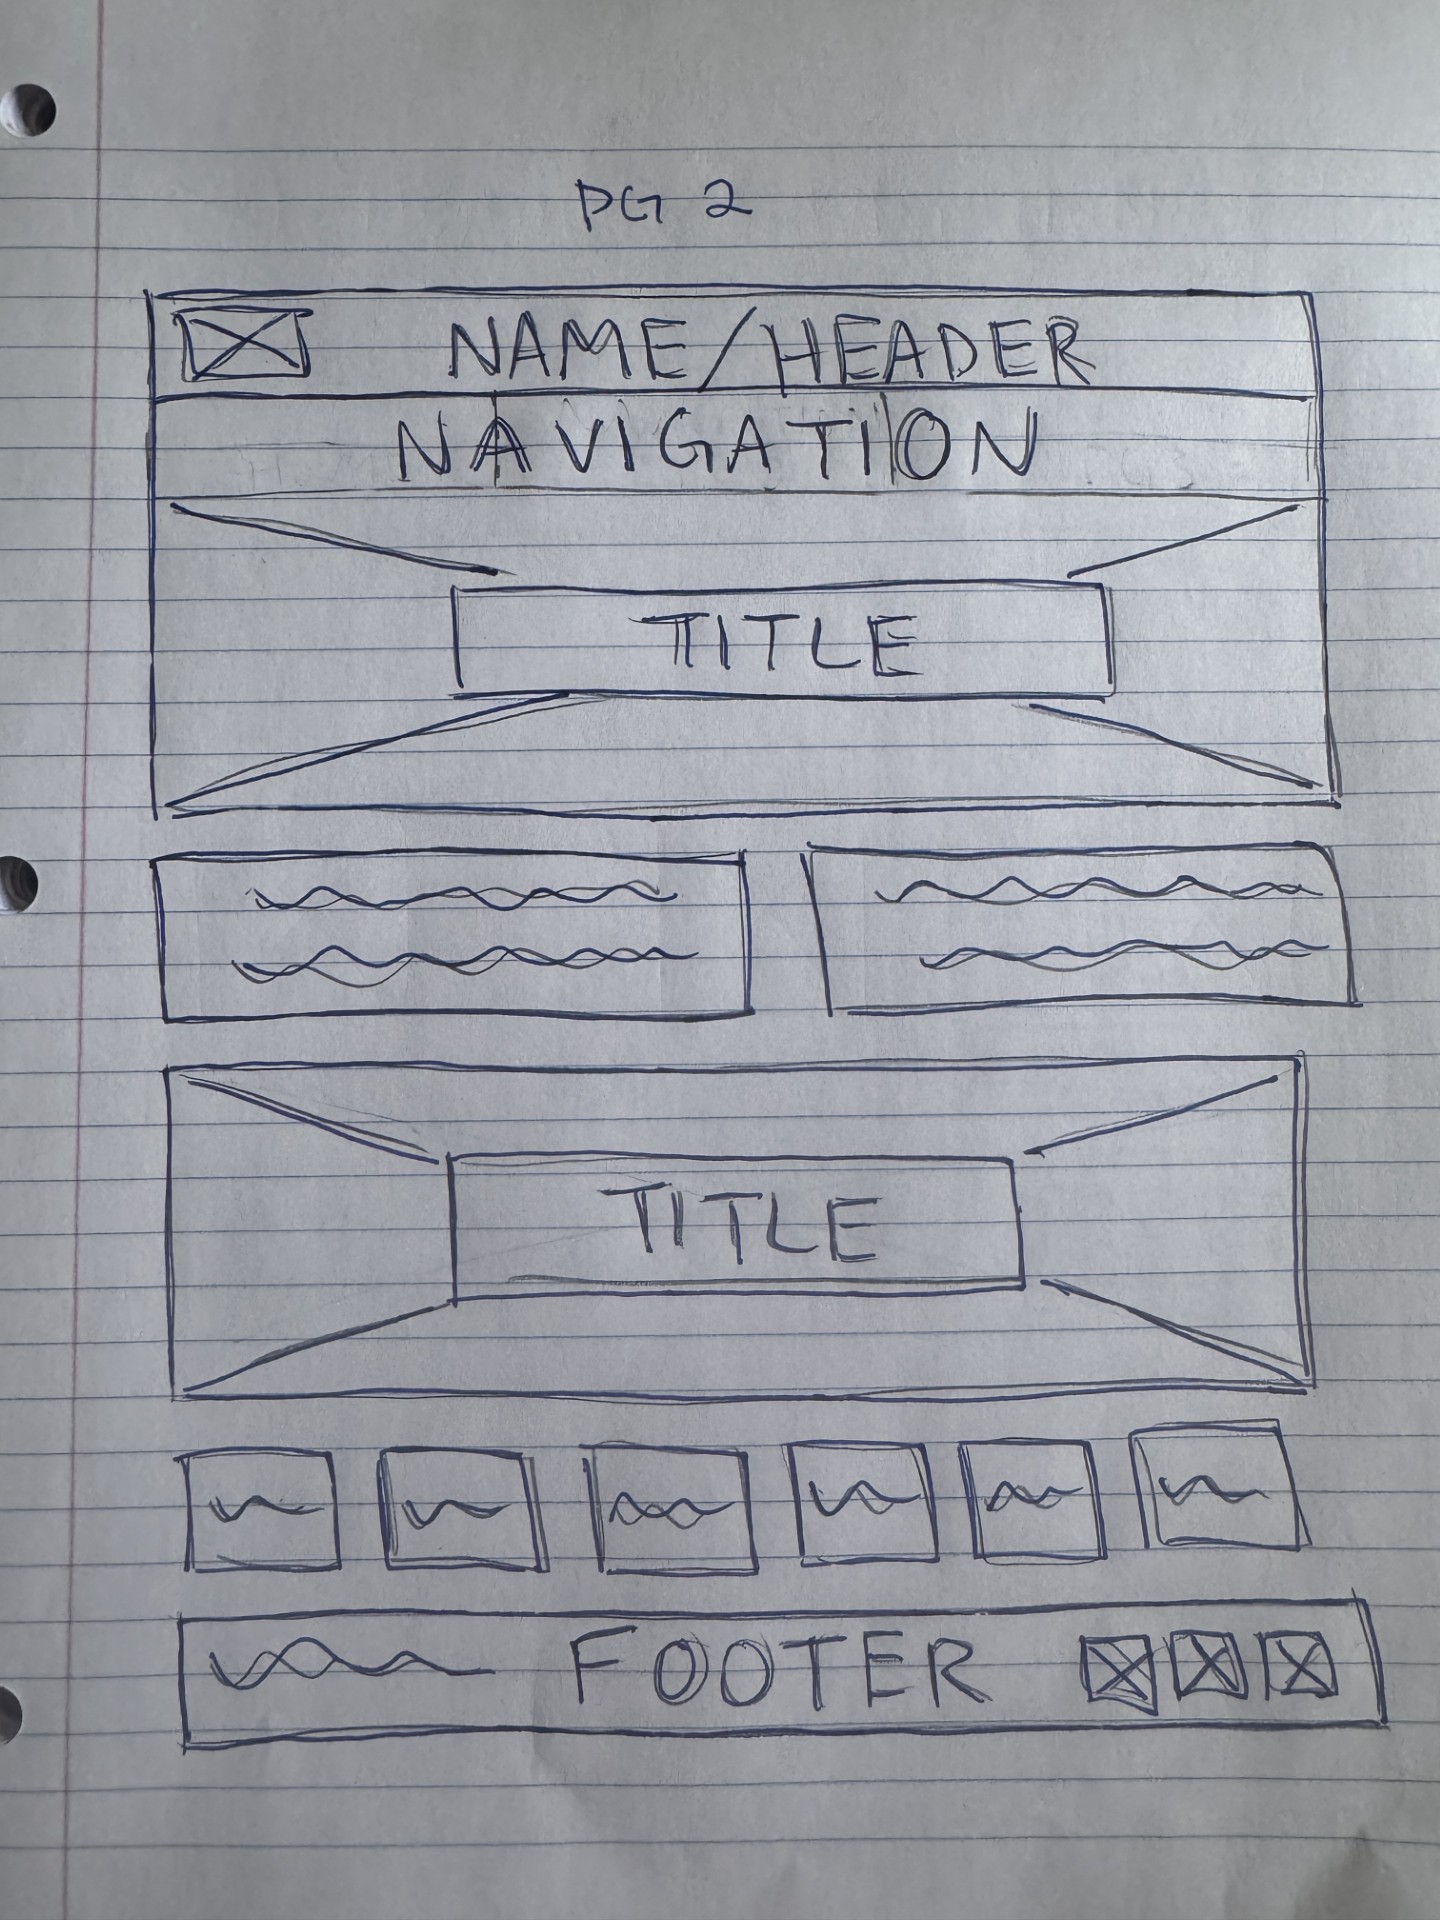 PG 2
NAME/HEADER
NAVIGATION
TITLE
TITLE
FOOTER